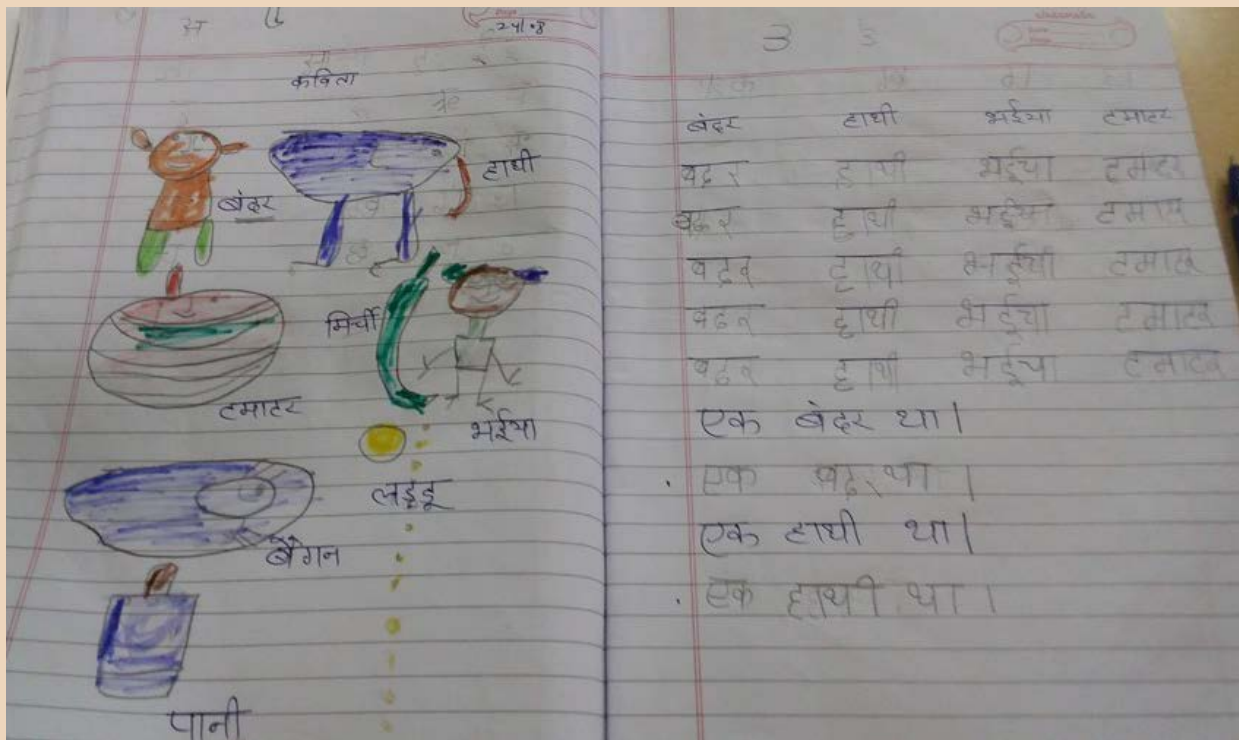 अ
24.8
कविता
बंदर
हाथी
मिर्ची
टमाटर
भईया
लड्डू
बैंगन
पानी
3 3
बंदर हाथी भईया टमाटर
बदर हाथी भईया टमाटर
बदर हाथी भईया टमाटर
बदर हाथी भईया टमाटर
बदर हाथी भईया टमाटर
बदर हाथी भईया टमाटर
एक बंदर था।
एक बदर था ।
एक हाथी था।
एक हाथी था ।